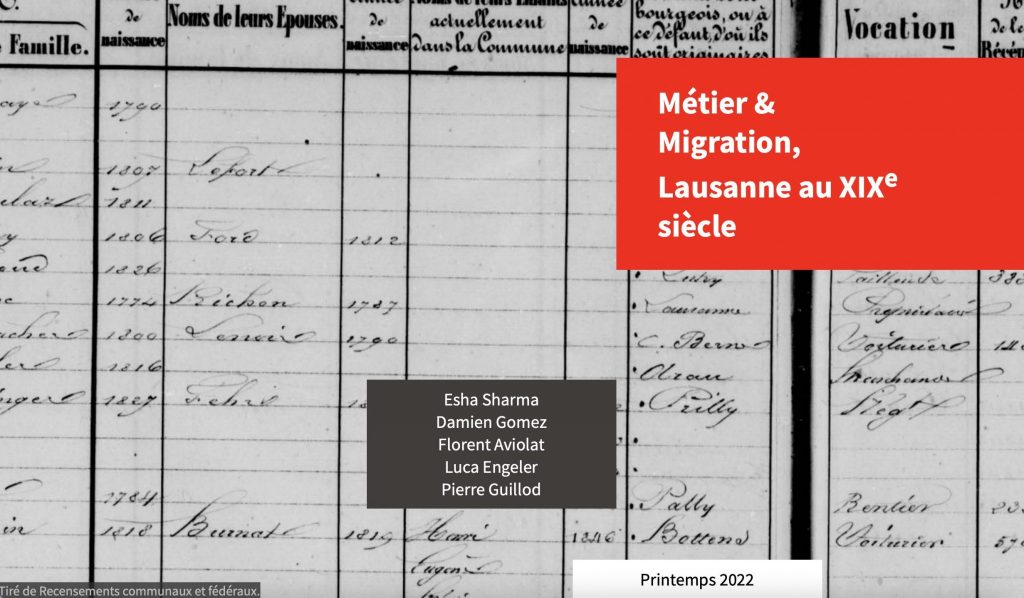 de
Noms de leurs Epouses.
de
actuellement
de
bourgeois, ou à
ce défaut, d'où ils
sont originaires
Famille.
naissance
naissance
dans la Commune
naissance
Vocation
de le
Métier &
Migration,
Lausanne au XIXe
siècle
1790
1807 Lefort
1811
1806 Ford 1812
1826 Lutry
1774 Richon 1787 Lausanne
1800 Lenoir 1790 C. Berne Voiturier
1816 Arau Marchande
1827 Fehr Prilly Négt
Esha Sharma
Damien Gomez
Florent Aviolat
Luca Engeler
Pierre Guillod
1784 Pully Rentier
1818 Burnat 1819 Henri 1846 Bottens Voiturier
Eugène
Tiré de Recensements communaux et fédéraux.
Printemps 2022